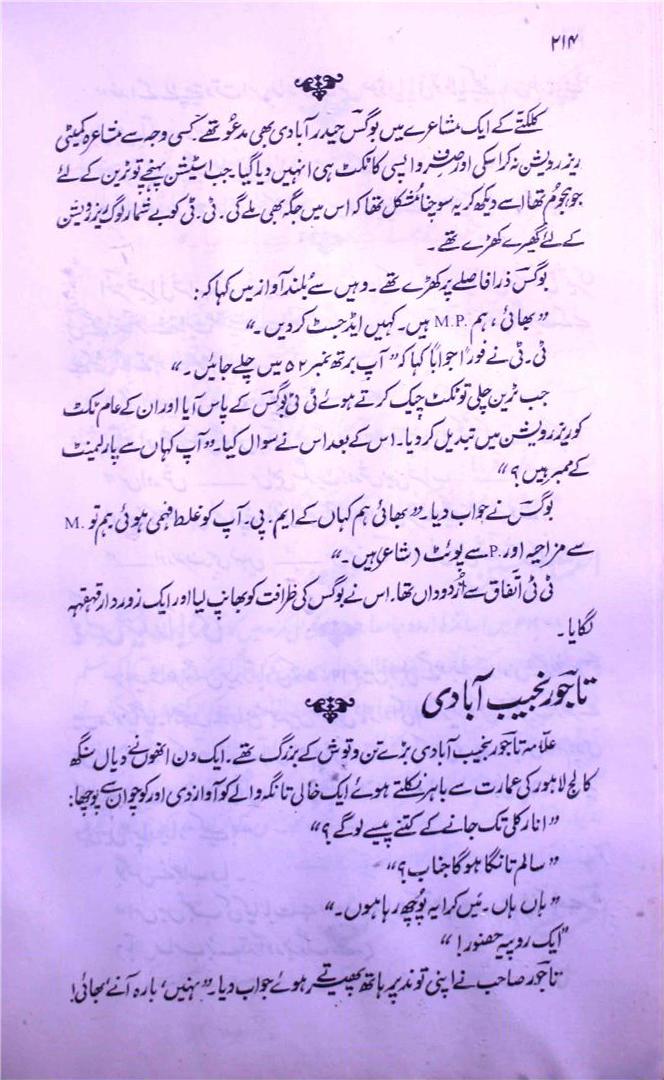 ۲۱۴
کلکتے کے ایک مشاعرے میں بوگس حیدرآبادی بھی مدعو تھے۔ کسی وجہ سے مشاعرہ کمیٹی
ریزرویشن نہ کرا سکی اور صرف واپسی کا ٹکٹ ہی انہیں دیا گیا۔ جب اسٹیشن پہنچے تو ٹرین کے لئے
جو ہجوم تھا اسے دیکھ کر یہ سوچنا مشکل تھا کہ اس میں جگہ بھی ملے گی۔ ٹی۔ٹی کو بے شمار لوگ ریزرویشن
کے لئے گھیرے کھڑے تھے۔
بوگس ذرا فاصلے پر کھڑے تھے۔ وہیں سے بلند آواز میں کہا کہ:
”بھائی، ہم M.P. ہیں۔ کہیں ایڈجسٹ کر دیں۔“
ٹی۔ٹی نے فوراً جواباً کہا کہ ”آپ برتھ نمبر ۵۲ میں چلے جائیں۔“
جب ٹرین چلی تو ٹکٹ چیک کرتے ہوئے ٹی ٹی بوگس کے پاس آیا اور ان کے عام ٹکٹ
کو ریزرویشن میں تبدیل کر دیا۔ اس کے بعد اس نے سوال کیا۔ ”آپ کہاں سے پارلیمنٹ
کے ممبر ہیں؟“
بوگس نے جواب دیا۔ ”بھائی ہم کہاں کے ایم۔پی۔ آپ کو غلط فہمی ہوئی ہم تو M.
سے مزاحیہ اور P. سے پوئٹ (شاعر) ہیں۔“
ٹی ٹی اتفاق سے اُردو داں تھا۔ اس نے بوگس کی ظرافت کو بھانپ لیا اور ایک زوردار قہقہہ
لگایا۔
تاجور نجیب آبادی
علامہ تاجور نجیب آبادی بڑے تن و توش کے بزرگ تھے۔ ایک دن انھوں نے دیال سنگھ
کالج لاہور کی عمارت سے باہر نکلتے ہوئے ایک خالی تانگہ والے کو آواز دی اور کوچوان سے پوچھا:
”انارکلی تک جانے کے کتنے پیسے لو گے؟“
”سالم تانگا ہو گا جناب؟“
”ہاں ہاں۔ میں کرایہ پوچھ رہا ہوں۔“
”ایک روپیہ حضور!“
تاجور صاحب نے اپنی توند پر ہاتھ پھیرتے ہوئے جواب دیا۔ ”نہیں‘ بارہ آنے‘ بھائی!